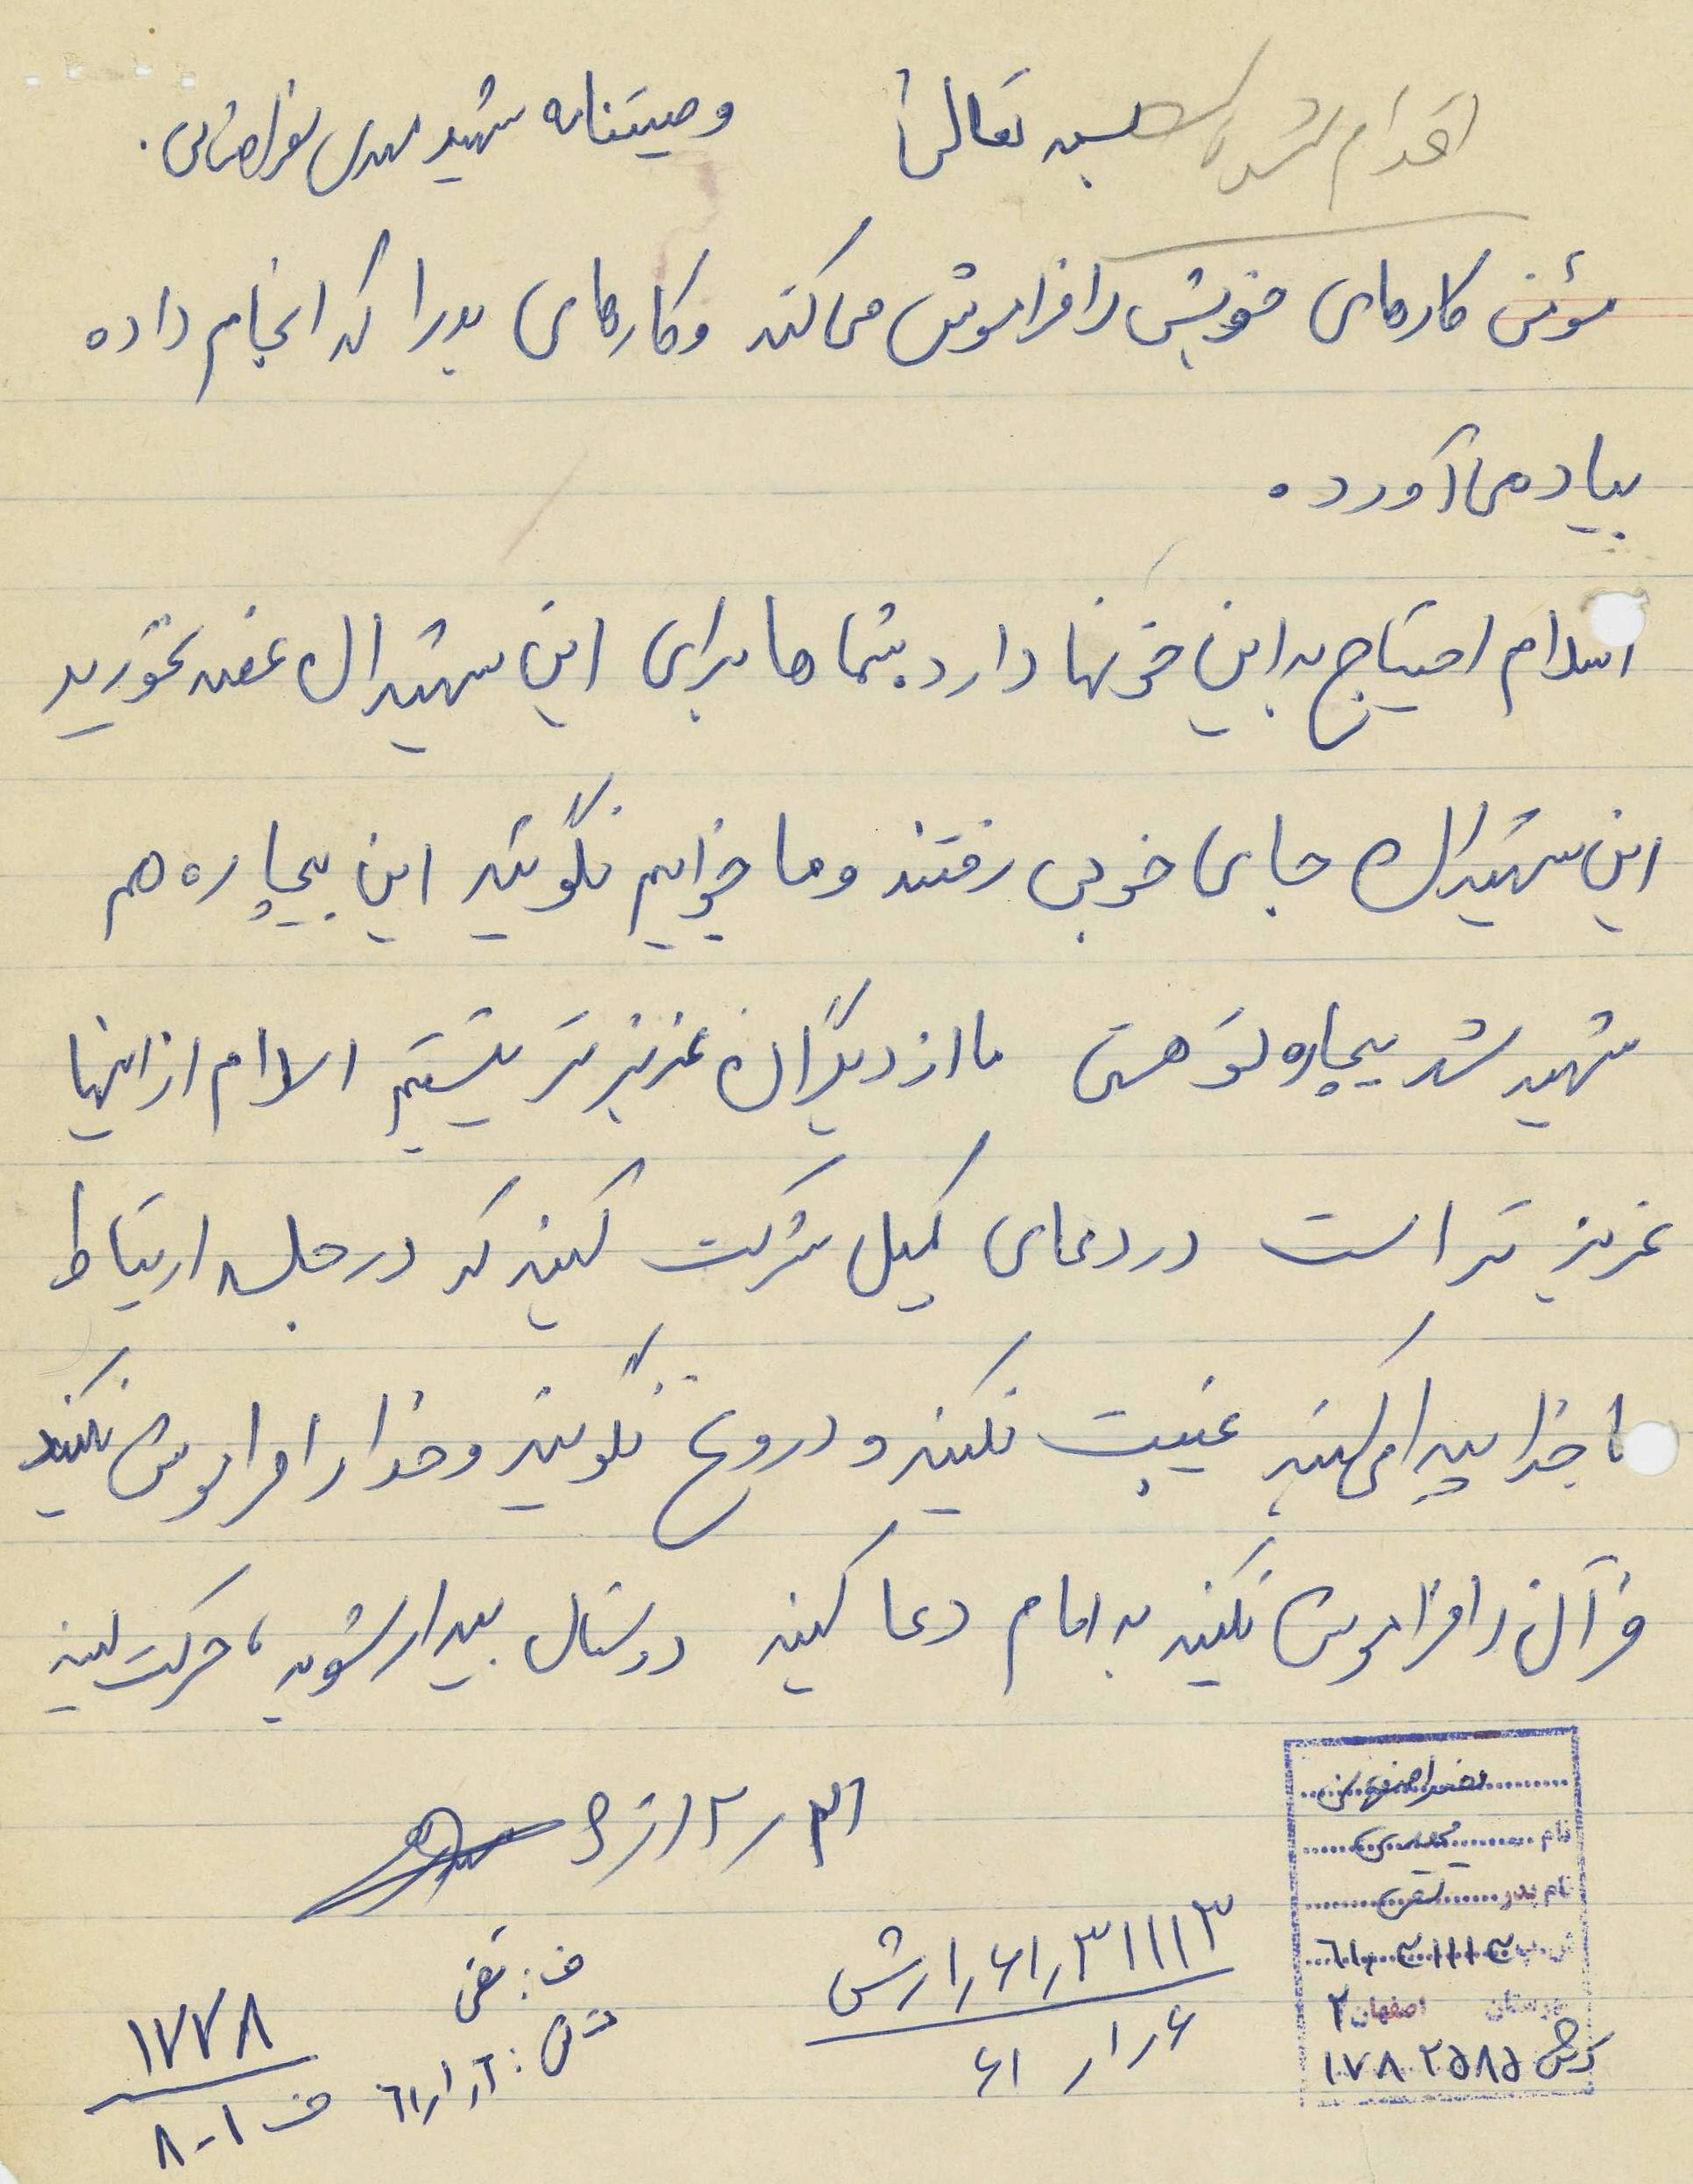 اقدام شد
بسمه تعالی
وصیتنامه شهید مهدی نصراصفهانی.
مؤمن کارهای خویش را فراموش می کند و کارهای بد را که انجام داده
بیاد می آورد.
اسلام احتیاج به این خونها دارد شما ها برای این شهیدان غصه نخورید
این شهیدان جای خوبی رفتند و ما خوابیم نگوئید این بیچاره هم
شهید شد بیچاره تو هستی ما از دیگران عزیز تر نیستیم اسلام از اینها
عزیز تر است در دعای کمیل شرکت کنید که در جلسه ارتباط
با خدا پیدا می کنید غیبت نکنید و دروغ نگوئید و خدا را فراموش نکنید
قرآن را فراموش نکنید به امام دعا کنید دوستان بیدار شوید، حرکت کنید
نصراصفهانی
نام مهدی
نام پدر تقی
۶۱٫۳۱۱۱۳
شهرستان اصفهان ۲
کش ۱۷۸۲۵۸۵
۶۱٫۳۱۱۱۳
۶٫۱٫۶۱
ف: تقی
ت ش: ۶٫۱٫۶۱
۱۷۷۸
ف ۱-۸